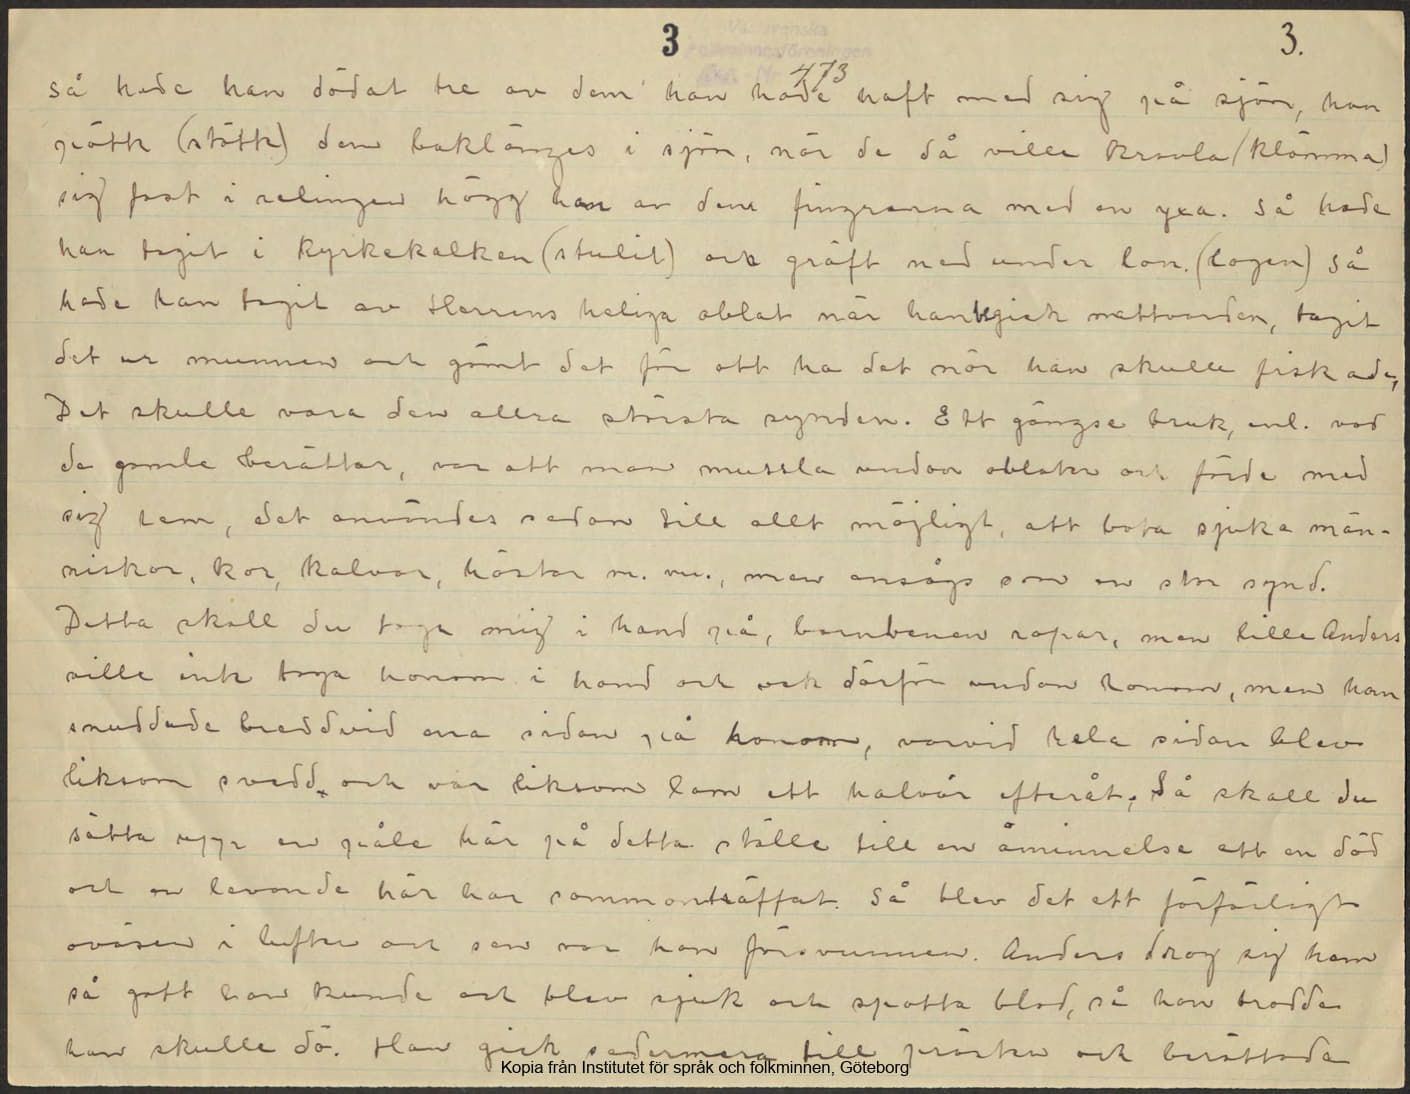 3 Västsvenska 3.
Folkminnesföreningen
473
så hade han dödat tre av dem han hade haft med sig på sjön, han
pôtte (stötte) dem baklänges i sjön, när de då ville kravla (klämma)
sig fast i relingen högg han av dem fingrarna med en yxa. Så hade
han tagit i kyrkekalken (stulit) och gräft ned under lon. (logen) Så
hade han tagit av Herrens heliga oblat när han begick nattvarden, tagit
det ur munnen och gömt det för att ha det när han skulle fiska de,
Det skulle vara den allra största synden. Ett gängse bruk, enl. vad
de gamle berättar, var att man mussla undan oblater och förde med
sig hem, det användes sedan till allt möjligt, att bota sjuka män-
niskor, kor, kalvar, hästar m. m., men ansågs som en stor synd.
Detta skall du taga mig i hand på, barnbenen ropar, men lille Anders
ville inte taga honom i hand och vek därför undan honom, men han
snuddade breddvid ena sidan på honom, varvid hela sidan blev
liksom svedd och var liksom lam ett halvår efteråt, Så skall du
sätta upp en påle här på detta ställe till en åminnelse att en död
och en levande här har sammanträffat. Så blev det ett förfärligt
oväsen i luften och sen var han försvunnen. Anders drog sig hem
så gott han kunde och blev sjuk och spotta blod, så han trodde
han skulle dö. Han gick sedermera till prästen och berättade
Kopia från Institutet för språk och folkminnen, Göteborg